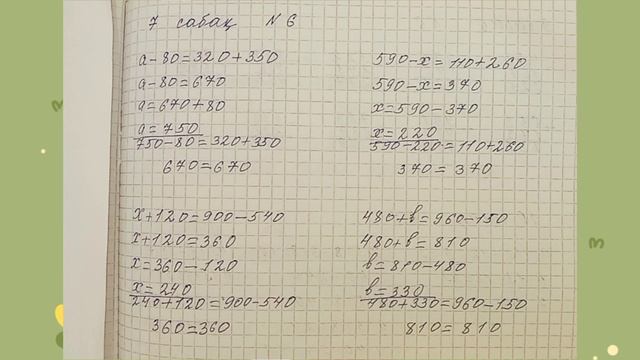 7 сабақ N 6
a-80=320+350
a-80=670
a=670+80
a=750
750-80=320+350
670=670
590-x=110+260
590-x=370
x=590-370
x=220
590-220=110+260
370=370
x+120=900-540
x+120=360
x=360-120
x=240
240+120=900-540
360=360
480+в=960-150
480+в=810
в=810-480
в=330
480+330=960-150
810=810